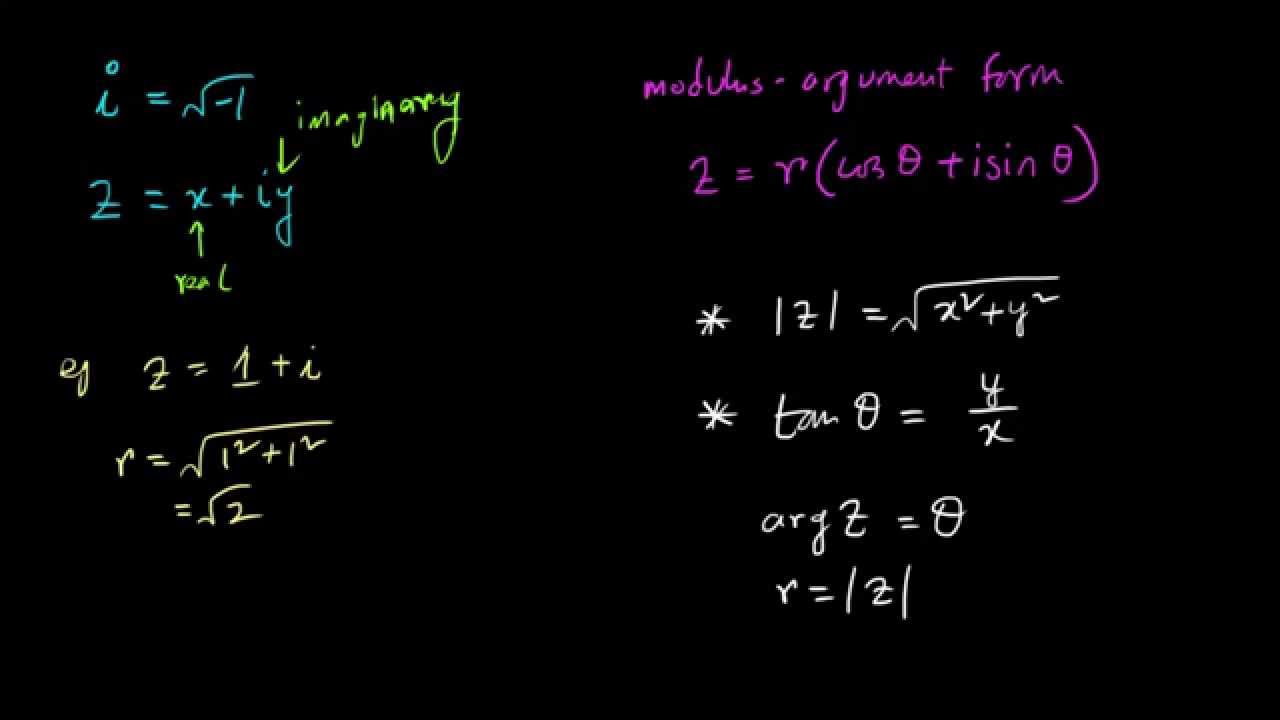 i = √-1
imaginary
z = x + iy
real
eg z = 1 + i
r = √1² + 1²
= √2
modulus - argument form
z = r(cos θ + i sin θ)
* |z| = √x² + y²
* tan θ = y/x
arg z = θ
r = |z|